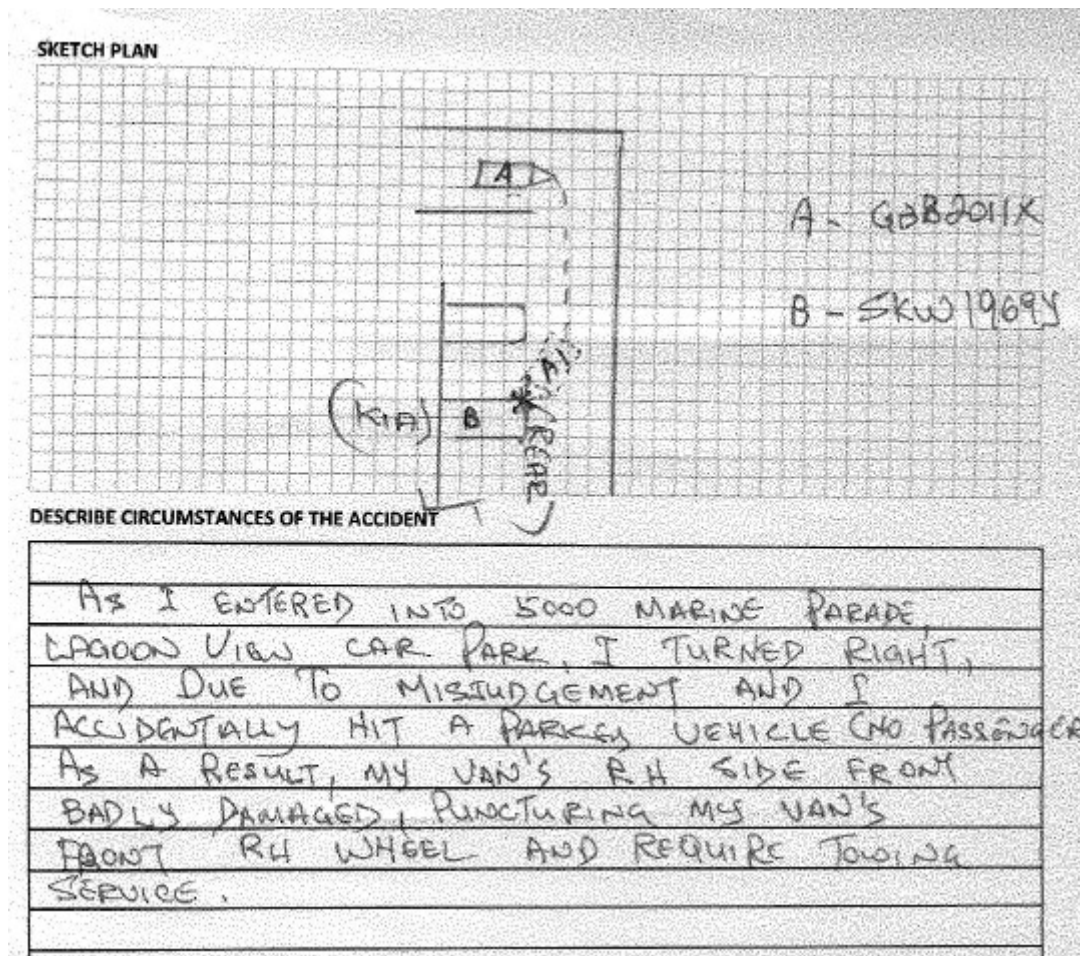 SKETCH PLAN
A
A - GBB2011X
B - SKW1969Y
A1
(KIA)
B
(REAR)
DESCRIBE CIRCUMSTANCES OF THE ACCIDENT
AS I ENTERED INTO 5000 MARINE PARADE,
LAGOON VIEW CAR PARK, I TURNED RIGHT,
AND DUE TO MISJUDGEMENT AND I
ACCIDENTALLY HIT A PARKED VEHICLE (NO PASSENGER
AS A RESULT, MY VAN'S RH SIDE FRONT
BADLY DAMAGED, PUNCTURING MY VAN'S
FRONT RH WHEEL AND REQUIRE TOWING
SERVICE.